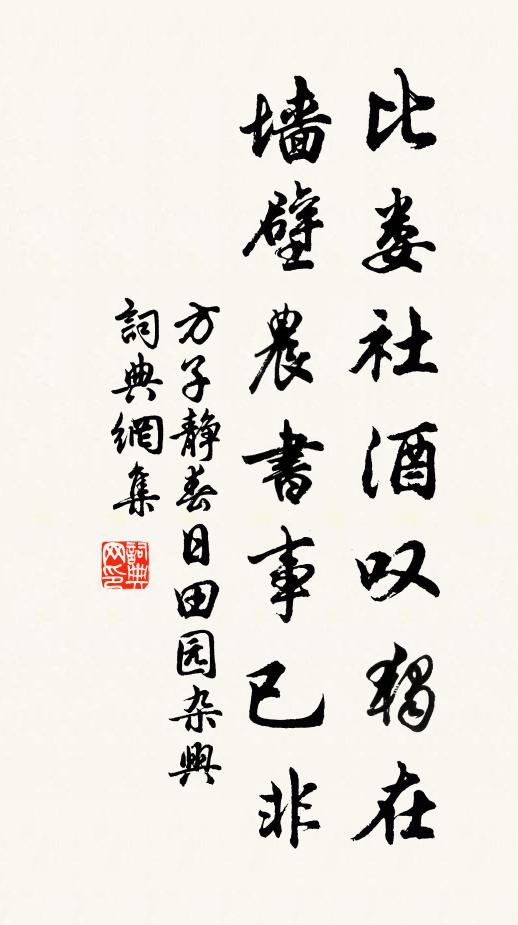 比娄社酒叹獨在
墙壁農書事已非
方子静春日田园杂興
詞典網集
詞典网印